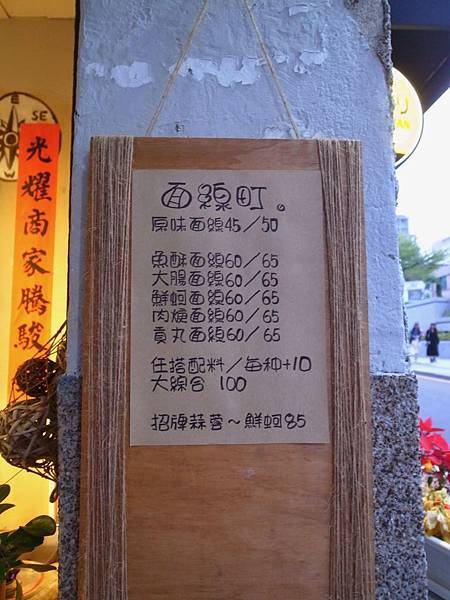 面線町。
原味面線45/50
魚酥面線60/65
大腸面線60/65
鮮蚵面線60/65
肉燥面線60/65
貢丸面線60/65
任搭配料/每种+10
大綜合 100
招牌蒜蓉~鮮蚵85
光耀商家騰駿
E
SE